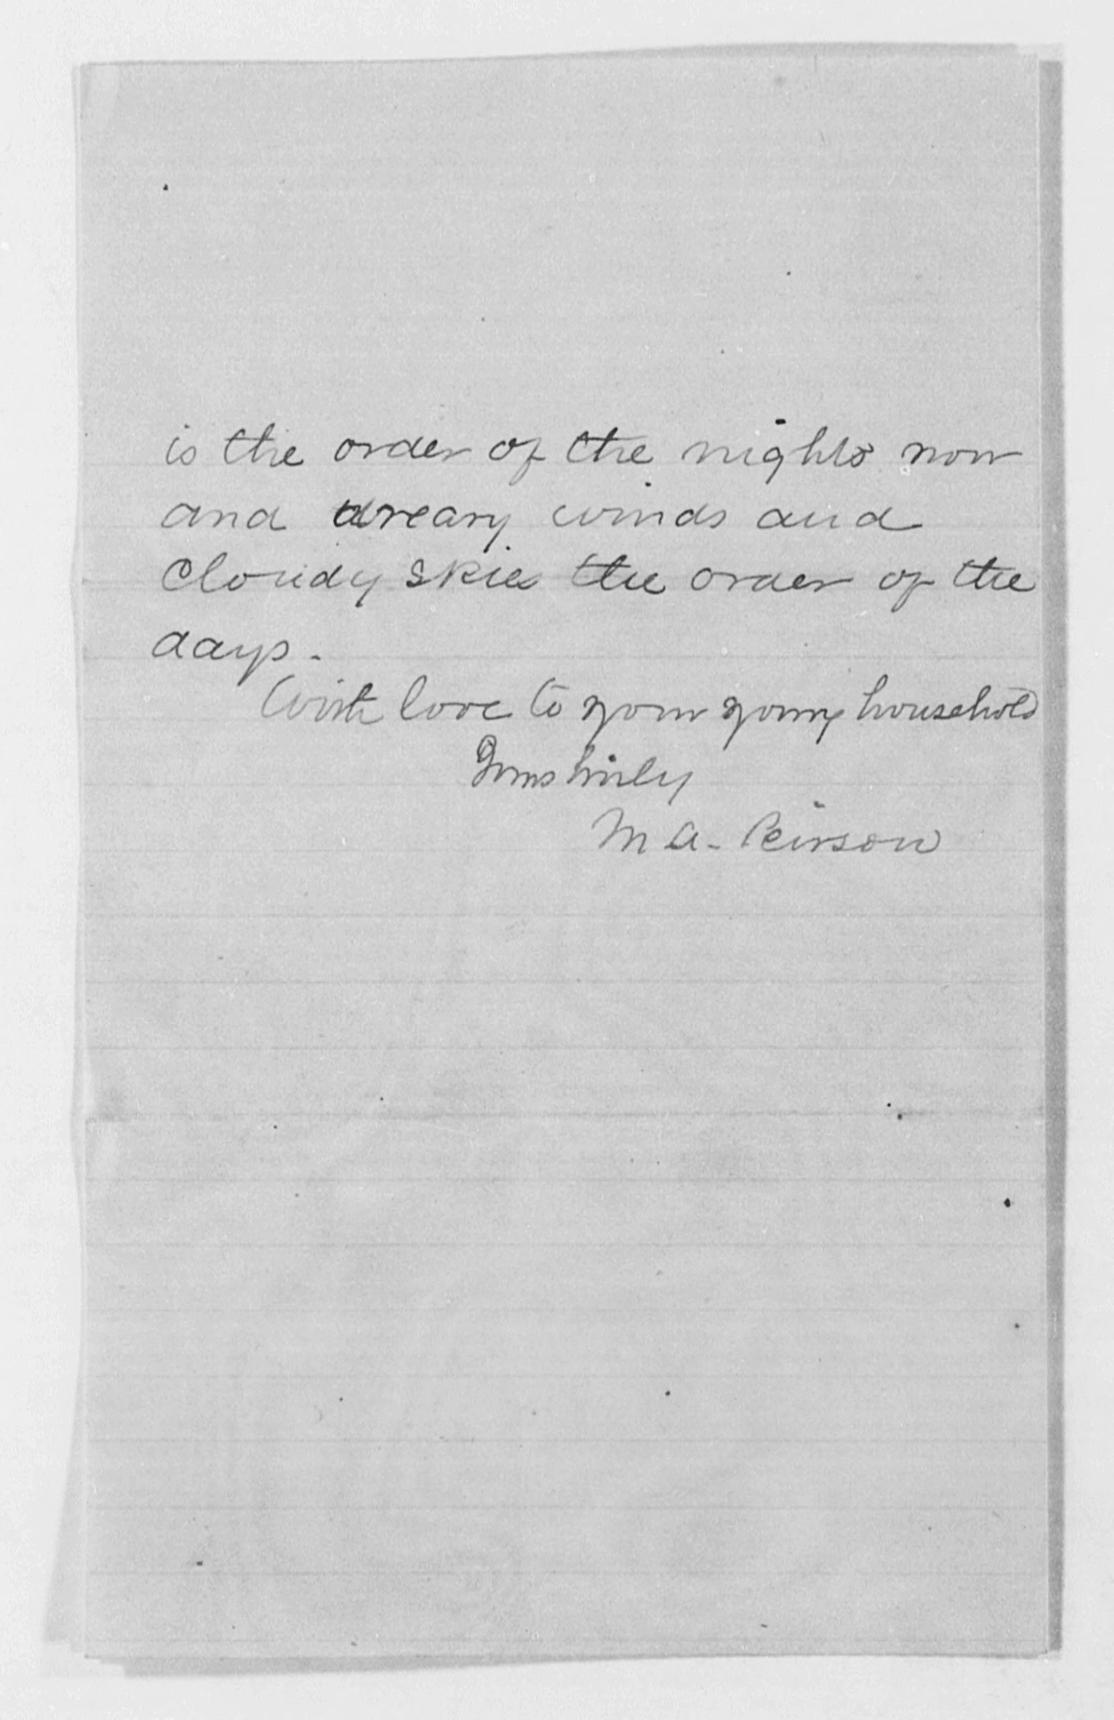 is the order of the nights now
and dreary winds and
Cloudy skies the order of the
days.
With love to your young household
Yours truly
M A. Peirson